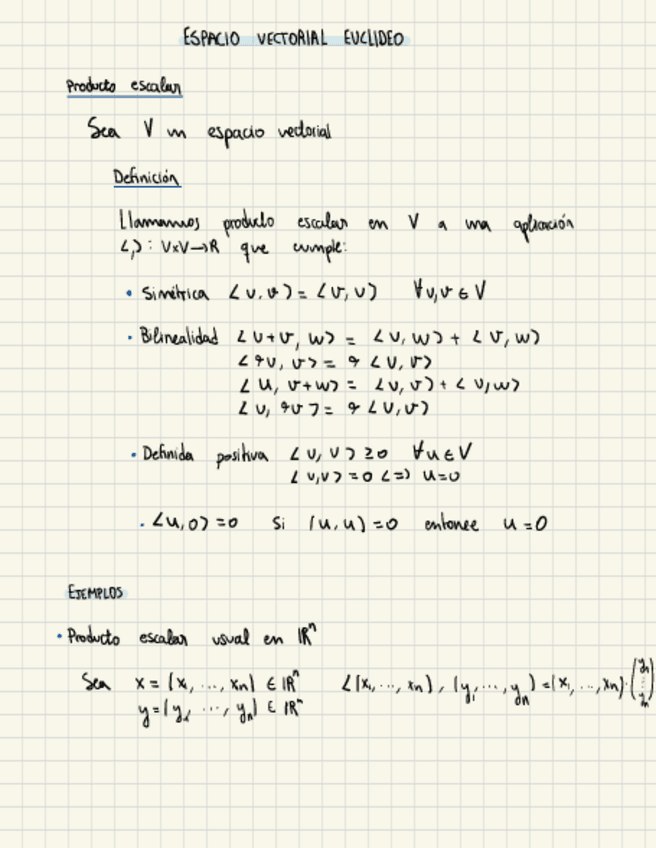 ESPACIO VECTORIAL EUCLIDEO
Producto escalar
Sea V un espacio vectorial
Definición
Llamamos producto escalar en V a una aplicación
<,> : V×V→R que cumple:
• Simétrica <u,v> = <v,u> ∀u,v ∈ V
• Bilinealidad <u+v, w> = <u,w> + <v,w>
<αu, v> = α <u,v>
<u, v+w> = <u,v> + <u,w>
<u, αv> = α <u,v>
• Definida positiva <u,u> ≥0 ∀u ∈ V
<u,u> = 0 <=> u=0
• <u,0> = 0 Si (u,u) = 0 entonce u = 0
EJEMPLOS
• Producto escalar usual en ℝⁿ
Sea x = (x₁, ..., xn) ∈ ℝⁿ <(x₁, ..., xn), (y₁, ..., yn) = (x₁, ..., xn)·(y₁ ⋮ yn)
y = (y₁, ..., yn) ∈ ℝⁿ